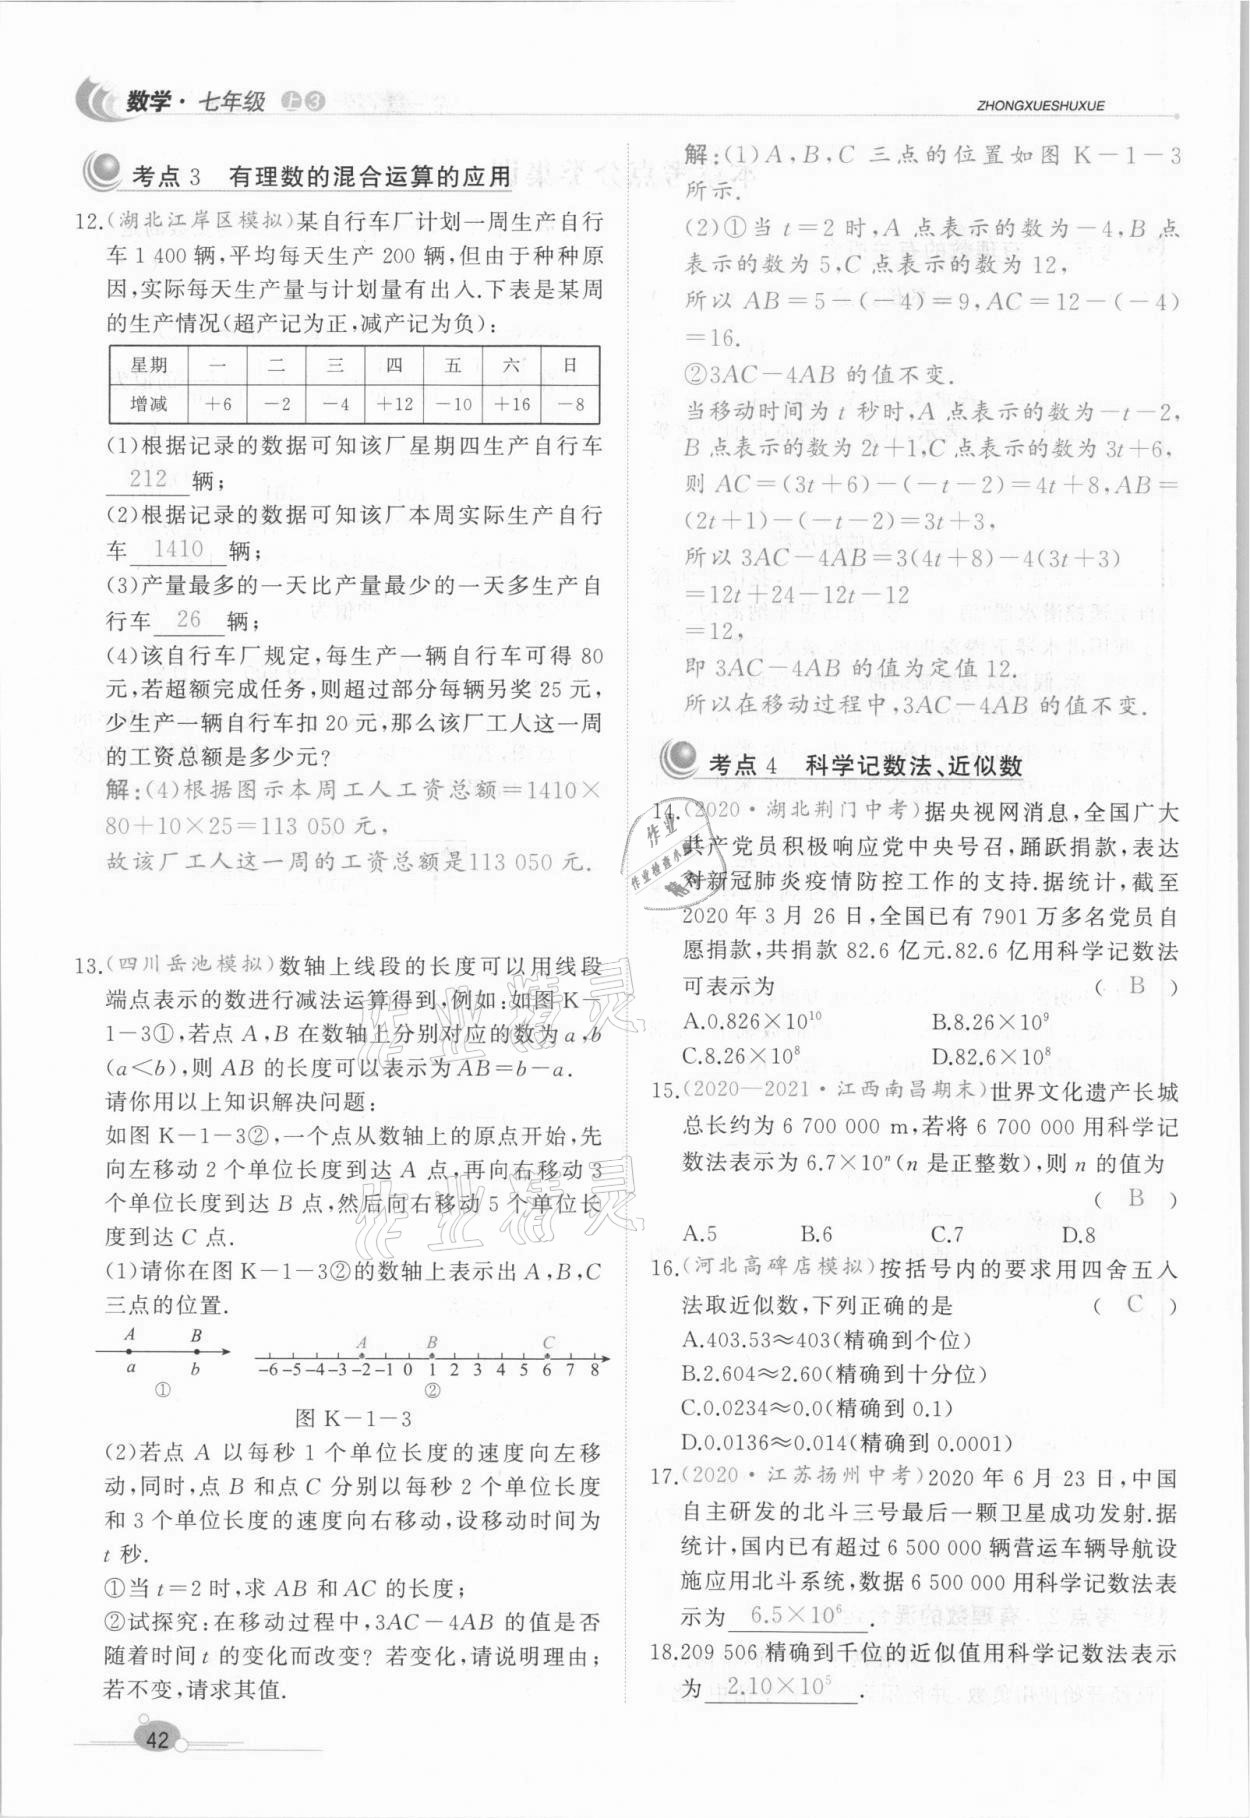 数学·七年级 上 3
ZHONGXUESHUXUE
考点 3 有理数的混合运算的应用
12.(湖北江岸区模拟)某自行车厂计划一周生产自行
车 1 400 辆,平均每天生产 200 辆,但由于种种原
因,实际每天生产量与计划量有出入.下表是某周
的生产情况(超产记为正,减产记为负):
星期 一 二 三 四 五 六 日
增减 +6 −2 −4 +12 −10 +16 −8
(1)根据记录的数据可知该厂星期四生产自行车
212 辆;
(2)根据记录的数据可知该厂本周实际生产自行
车 1410 辆;
(3)产量最多的一天比产量最少的一天多生产自
行车 26 辆;
(4)该自行车厂规定,每生产一辆自行车可得 80
元,若超额完成任务,则超过部分每辆另奖 25 元,
少生产一辆自行车扣 20 元,那么该厂工人这一周
的工资总额是多少元?
解:(4)根据图示本周工人工资总额=1410×
80+10×25=113 050 元,
故该厂工人这一周的工资总额是113 050 元.
13.(四川岳池模拟)数轴上线段的长度可以用线段
端点表示的数进行减法运算得到,例如:如图 K−
1−3①,若点 A,B 在数轴上分别对应的数为 a,b
(a<b),则 AB 的长度可以表示为 AB=b−a.
请你用以上知识解决问题:
如图 K−1−3②,一个点从数轴上的原点开始,先
向左移动 2 个单位长度到达 A 点,再向右移动 3
个单位长度到达 B 点,然后向右移动 5 个单位长
度到达 C 点.
(1)请你在图 K−1−3②的数轴上表示出 A,B,C
三点的位置.
A B A B C
a b −6−5−4−3−2−1 0 1 2 3 4 5 6 7 8
① ②
图 K−1−3
(2)若点 A 以每秒 1 个单位长度的速度向左移
动,同时,点 B 和点 C 分别以每秒 2 个单位长度
和 3 个单位长度的速度向右移动,设移动时间为
t 秒.
①当 t=2 时,求 AB 和 AC 的长度;
②试探究:在移动过程中,3AC−4AB 的值是否
随着时间 t 的变化而改变? 若变化,请说明理由;
若不变,请求其值.
42
解:(1)A,B,C 三点的位置如图 K−1−3
所示.
(2)①当 t=2 时,A 点表示的数为−4,B 点
表示的数为 5,C 点表示的数为 12,
所以 AB=5−(−4)=9,AC=12−(−4)
=16.
②3AC−4AB 的值不变.
当移动时间为 t 秒时,A 点表示的数为−t−2,
B 点表示的数为 2t+1,C 点表示的数为 3t+6,
则 AC=(3t+6)−(−t−2)=4t+8,AB=
(2t+1)−(−t−2)=3t+3,
所以 3AC−4AB=3(4t+8)−4(3t+3)
=12t+24−12t−12
=12,
即 3AC−4AB 的值为定值 12.
所以在移动过程中,3AC−4AB 的值不变.
考点 4 科学记数法、近似数
14.(2020·湖北荆门中考)据央视网消息,全国广大
共产党员积极响应党中央号召,踊跃捐款,表达
对新冠肺炎疫情防控工作的支持.据统计,截至
2020 年 3 月 26 日,全国已有 7901 万多名党员自
愿捐款,共捐款 82.6 亿元.82.6 亿用科学记数法
可表示为 ( B )
A.0.826×10¹⁰ B.8.26×10⁹
C.8.26×10⁸ D.82.6×10⁸
15.(2020—2021·江西南昌期末)世界文化遗产长城
总长约为 6 700 000 m,若将 6 700 000 用科学记
数法表示为 6.7×10ⁿ(n 是正整数),则 n 的值为
( B )
A.5 B.6 C.7 D.8
16.(河北高碑店模拟)按括号内的要求用四舍五入
法取近似数,下列正确的是 ( C )
A.403.53≈403(精确到个位)
B.2.604≈2.60(精确到十分位)
C.0.0234≈0.0(精确到 0.1)
D.0.0136≈0.014(精确到 0.0001)
17.(2020·江苏扬州中考)2020 年 6 月 23 日,中国
自主研发的北斗三号最后一颗卫星成功发射.据
统计,国内已有超过 6 500 000 辆营运车辆导航设
施应用北斗系统,数据 6 500 000 用科学记数法表
示为 6.5×10⁶ .
18.209 506 精确到千位的近似值用科学记数法表示
为 2.10×10⁵ .
作业精灵
作业精灵
作业
作业检查小
精灵